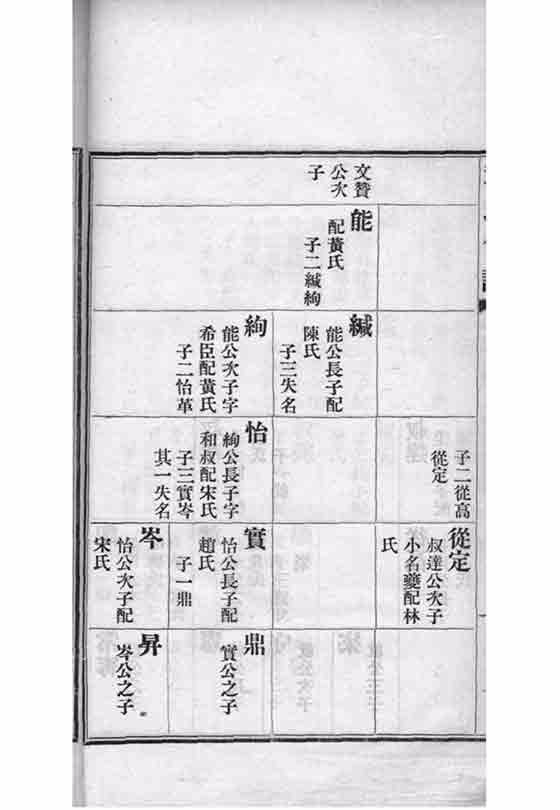 文贊
公次
子
能
配黃氏
子二緘絢
緘
能公長子配
陳氏
子三失名
絢
能公次子字
希臣配黃氏
子二怡革
子二從高
從定
怡
絢公長子字
和叔配宋氏
子三實岑
其一失名
從定
叔達公次子
小名夔配林
氏
實
怡公長子配
趙氏
子一鼎
岑
怡公次子配
宋氏
鼎
實公之子
昇
岑公之子